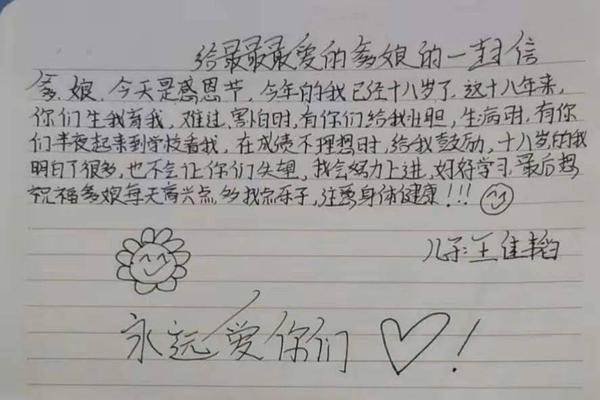 给最最最爱的爹娘的一封信
爹、娘，今天是感恩节，今年的我已经十八岁了，这十八年来，
你们生我育我，难过、害怕时，有你们给我壮胆，生病时，有你
们半夜起来到学校看我，在成绩不理想时，给我鼓励，十八岁的我
明白了很多，也不会让你们失望，我会努力上进，好好学习，最后想
祝福爹娘每天高兴点，多找点乐子，注意身体健康！！！
儿子：王佳韬
永远爱你们！